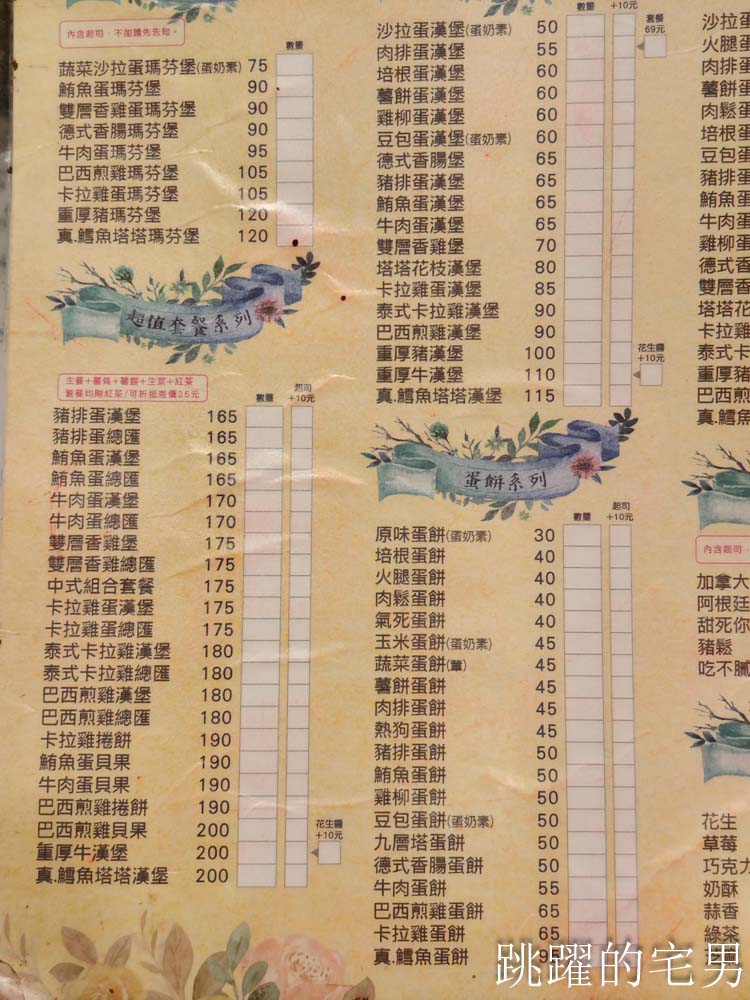 內含起司、不加請先告知。
數量
蔬菜沙拉蛋瑪芬堡(蛋奶素) 75
鮪魚蛋瑪芬堡 90
雙層香雞蛋瑪芬堡 90
德式香腸瑪芬堡 90
牛肉蛋瑪芬堡 95
巴西煎雞瑪芬堡 105
卡拉雞蛋瑪芬堡 105
重厚豬瑪芬堡 120
真.鱈魚塔塔瑪芬堡 120
超值套餐系列
主餐+薯條+薯餅+生菜+紅茶
套餐均附紅茶/可折抵差價25元
數量
起司
+10元
豬排蛋漢堡 165
豬排蛋總匯 165
鮪魚蛋漢堡 165
鮪魚蛋總匯 165
牛肉蛋漢堡 170
牛肉蛋總匯 170
雙層香雞堡 175
雙層香雞總匯 175
中式組合套餐 175
卡拉雞蛋漢堡 175
卡拉雞蛋總匯 175
泰式卡拉雞漢堡 180
泰式卡拉雞總匯 180
巴西煎雞漢堡 180
巴西煎雞總匯 180
卡拉雞捲餅 190
鮪魚蛋貝果 190
牛肉蛋貝果 190
巴西煎雞捲餅 190
巴西煎雞貝果 200
重厚牛漢堡 200
真.鱈魚塔塔漢堡 200
花生醬
+10元
數量
+10元
套餐
69元
沙拉蛋漢堡(蛋奶素) 50
肉排蛋漢堡 55
培根蛋漢堡 60
薯餅蛋漢堡 60
雞柳蛋漢堡 60
豆包蛋漢堡(蛋奶素) 60
德式香腸堡 65
豬排蛋漢堡 65
鮪魚蛋漢堡 65
牛肉蛋漢堡 65
雙層香雞堡 70
塔塔花枝漢堡 80
卡拉雞蛋漢堡 85
泰式卡拉雞漢堡 90
巴西煎雞漢堡 90
重厚豬漢堡 100
重厚牛漢堡 110
真.鱈魚塔塔漢堡 115
花生醬
+10元
蛋餅系列
數量
起司
+10元
原味蛋餅(蛋奶素) 30
培根蛋餅 40
火腿蛋餅 40
肉鬆蛋餅 40
氣死蛋餅 40
玉米蛋餅(蛋奶素) 45
蔬菜蛋餅(葷) 45
薯餅蛋餅 45
肉排蛋餅 45
熱狗蛋餅 45
豬排蛋餅 50
鮪魚蛋餅 50
雞柳蛋餅 50
豆包蛋餅(蛋奶素) 50
九層塔蛋餅 50
德式香腸蛋餅 50
牛肉蛋餅 55
巴西煎雞蛋餅 65
卡拉雞蛋餅 65
真.鱈魚蛋餅
沙拉蛋
火腿蛋
肉排蛋
薯餅蛋
肉鬆蛋
培根蛋
豆包蛋
豬排蛋
鮪魚蛋
牛肉蛋
雞柳蛋
德式香
雙層香
塔塔花
卡拉雞
泰式卡
重厚豬
巴西煎
真.鱈
內含起司、
加拿大
阿根廷
甜死你
豬鬆
吃不膩
花生
草莓
巧克力
奶酥
蒜香
綠茶
跳躍的宅男